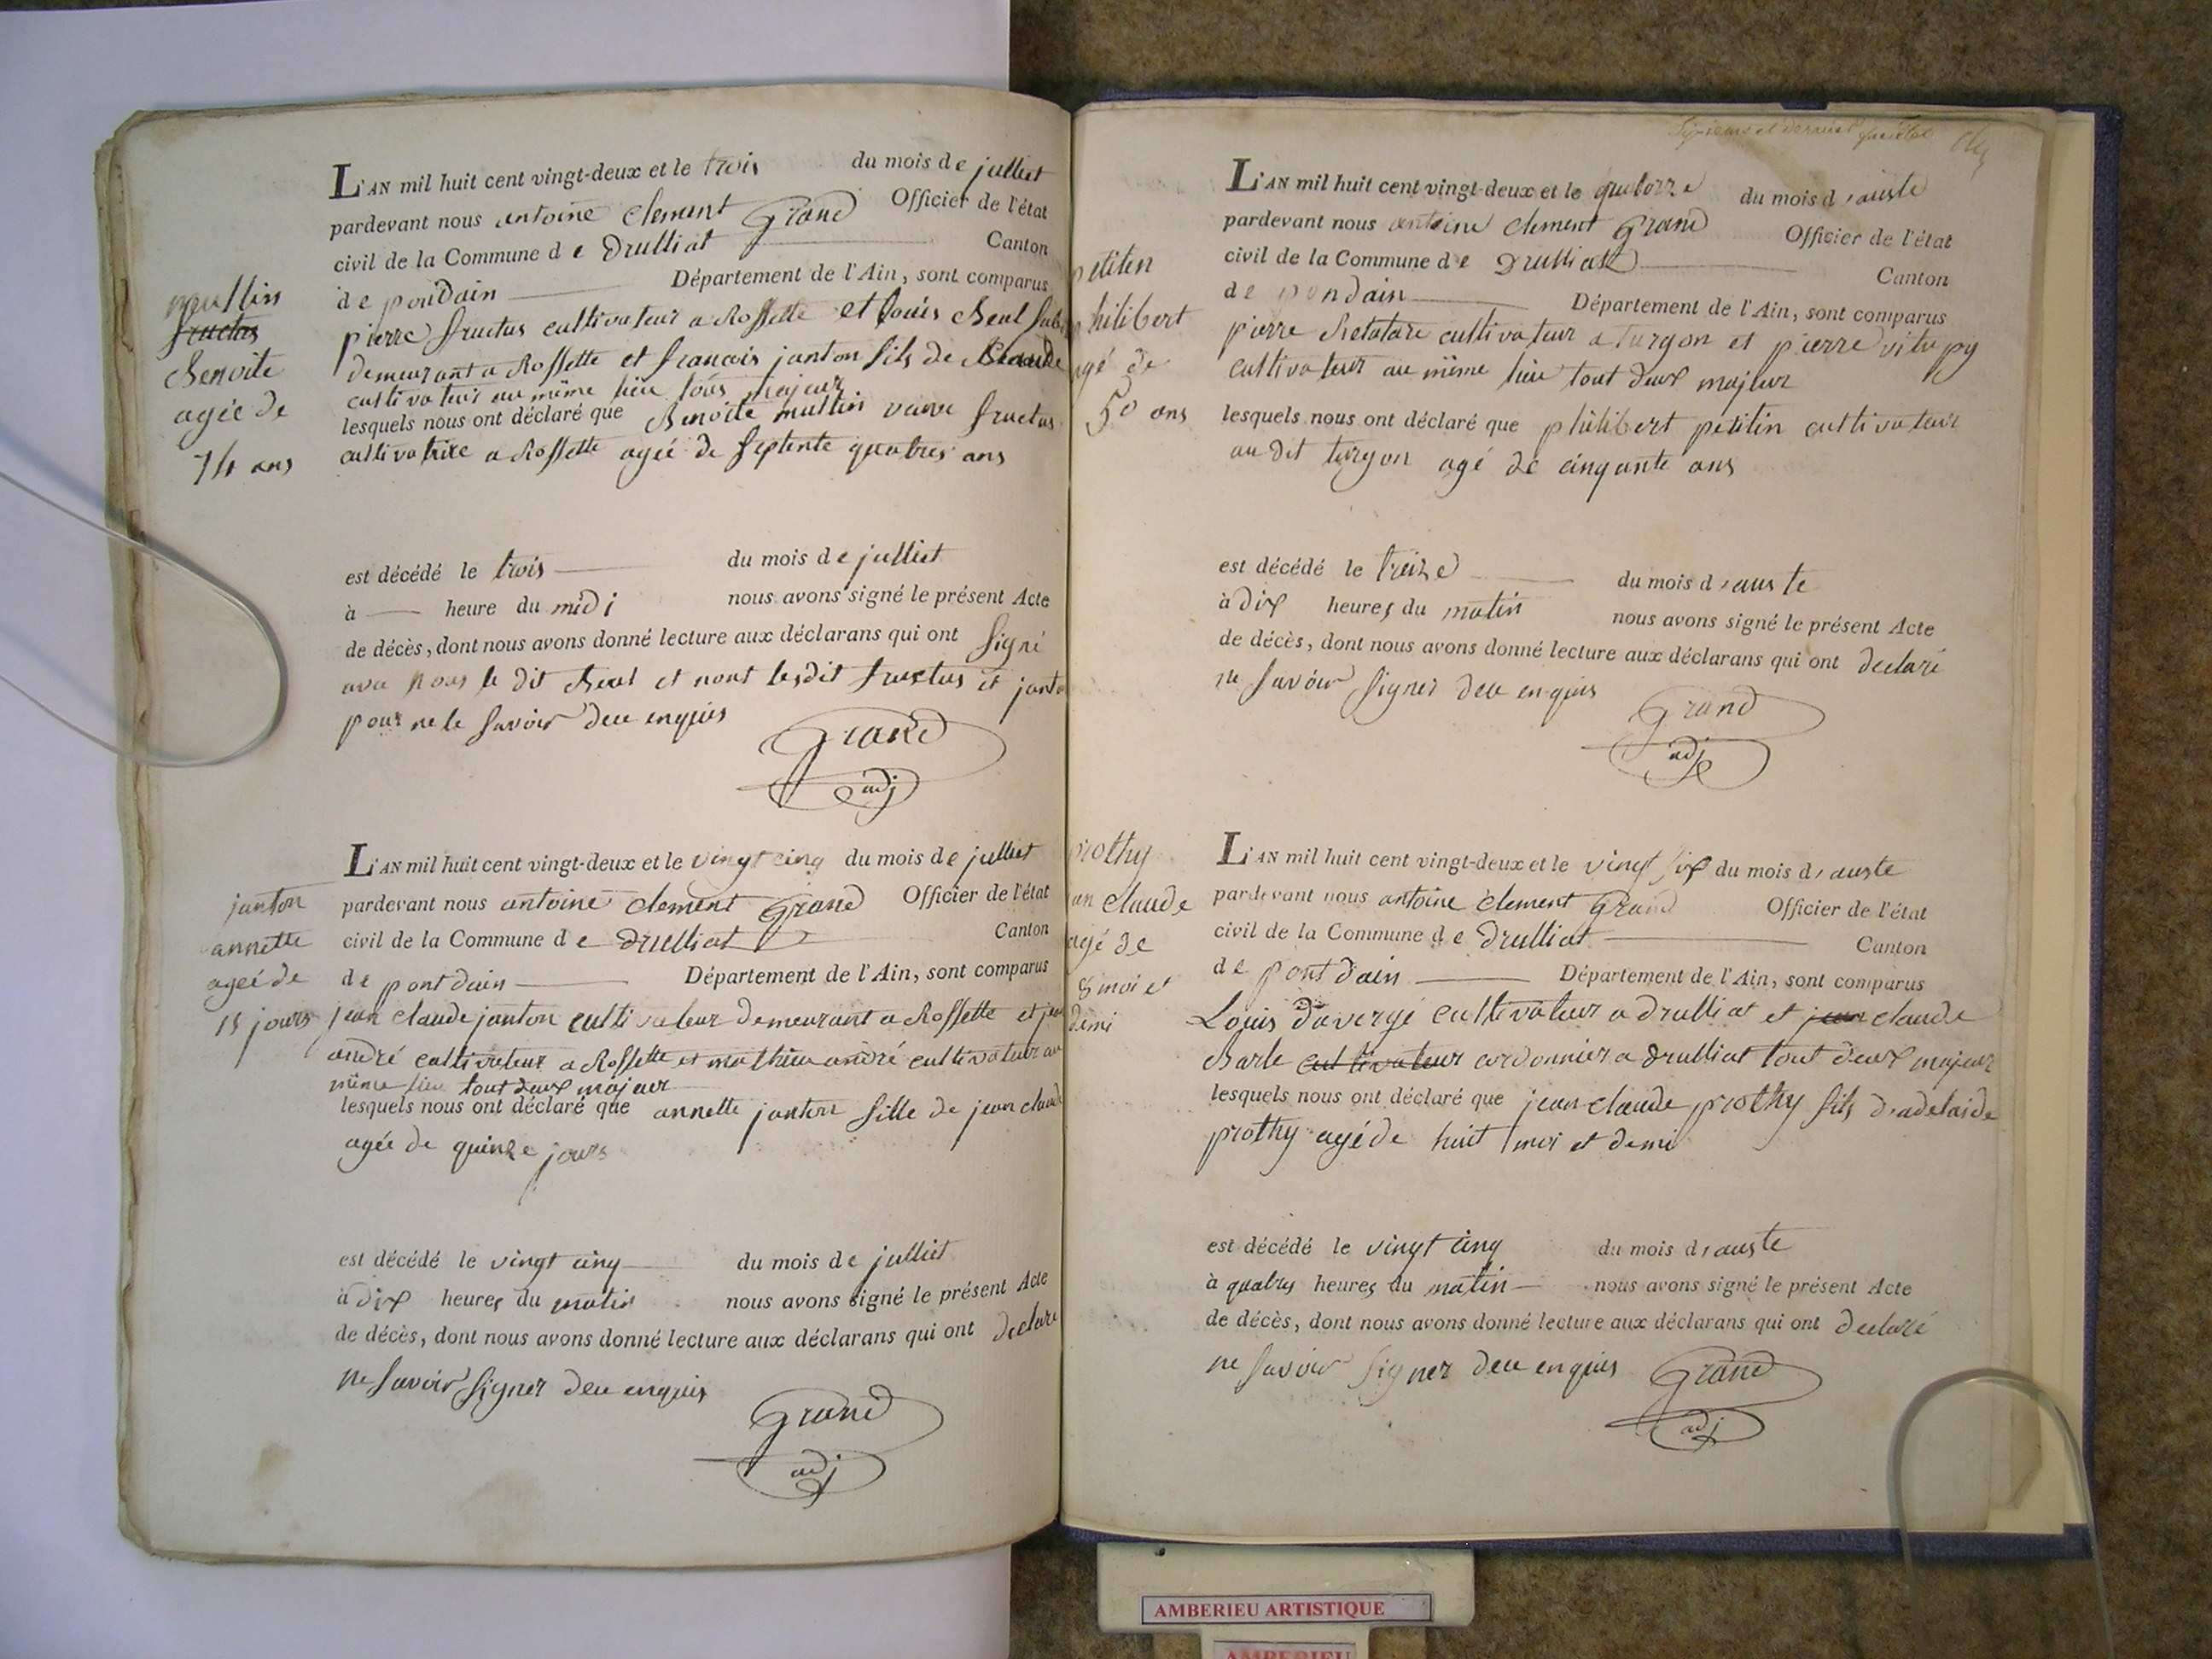 mullin
fructus
Benoite
agée de
74 ans
L'AN mil huit cent vingt-deux et le trois du mois de julliet
pardevant nous antoine clement Grand Officier de l'état
civil de la Commune de Drulliat Canton
de pondain Département de l'Ain, sont comparus
pierre fructus cultivateur a Rossette et Louis Beul
demeurant a Rossette et francois janton fils de Claude
cultivateur au même lieu tous majeur
lesquels nous ont déclaré que Benoite mullin veuve fructus
cultivatrice a Rossette agée de septente quatres ans
est décédé le trois du mois de julliet
à heure du midi nous avons signé le présent Acte
de décès, dont nous avons donné lecture aux déclarans qui ont signé
avec nous le dit Beul et nont lesdit fructus et janto
pour ne le savoir deu enquis
Grand
adj
janton
annette
ageé de
15 jours
L'AN mil huit cent vingt-deux et le vingt cinq du mois de julliet
pardevant nous antoine clement Grand Officier de l'état
civil de la Commune de Drulliat Canton
de pont dain Département de l'Ain, sont comparus
jean claude janton cultivateur demeurant a Rossette et jean
andré cultivateur a Rossette et mathieu andré cultivateur au
même lieu tout deux majeur
lesquels nous ont déclaré que annette janton fille de jean claude
agée de quinze jours
est décédé le vingt cinq du mois de julliet
à dix heures du matin nous avons signé le présent Acte
de décès, dont nous avons donné lecture aux déclarans qui ont declaré
ne savoir signer deu enquis
Grand
adj
petitin
philibert
agé de
50 ans
L'AN mil huit cent vingt-deux et le quatorze du mois d'auste
pardevant nous antoine clement Grand Officier de l'état
civil de la Commune de Drulliat Canton
de pondain Département de l'Ain, sont comparus
pierre cultivateur a turgon et pierre vitupy
cultivateur au même lieu tout deux majeur
lesquels nous ont déclaré que philibert petitin cultivateur
au dit turgon agé de cinquante ans
est décédé le treize du mois d'auste
à dix heures du matin nous avons signé le présent Acte
de décès, dont nous avons donné lecture aux déclarans qui ont declaré
ne savoir signer deu enquis
Grand
adj
prothy
jean claude
agé de
8 moi et
demi
L'AN mil huit cent vingt-deux et le vingt six du mois d'auste
pardevant nous antoine clement Grand Officier de l'état
civil de la Commune de Drulliat Canton
de pont dain Département de l'Ain, sont comparus
Louis davergé cultivateur a drulliat et jean claude
Barle cultivateur cordonnier a drulliat tout deux majeur
lesquels nous ont déclaré que jean claude prothy fils d'adelaide
prothy agé de huit moi et demi
est décédé le vingt cinq du mois d'auste
à quatres heures du matin nous avons signé le présent Acte
de décès, dont nous avons donné lecture aux déclarans qui ont declaré
ne savoir signer deu enquis
Grand
adj
AMBERIEU ARTISTIQUE
AMBERIEU